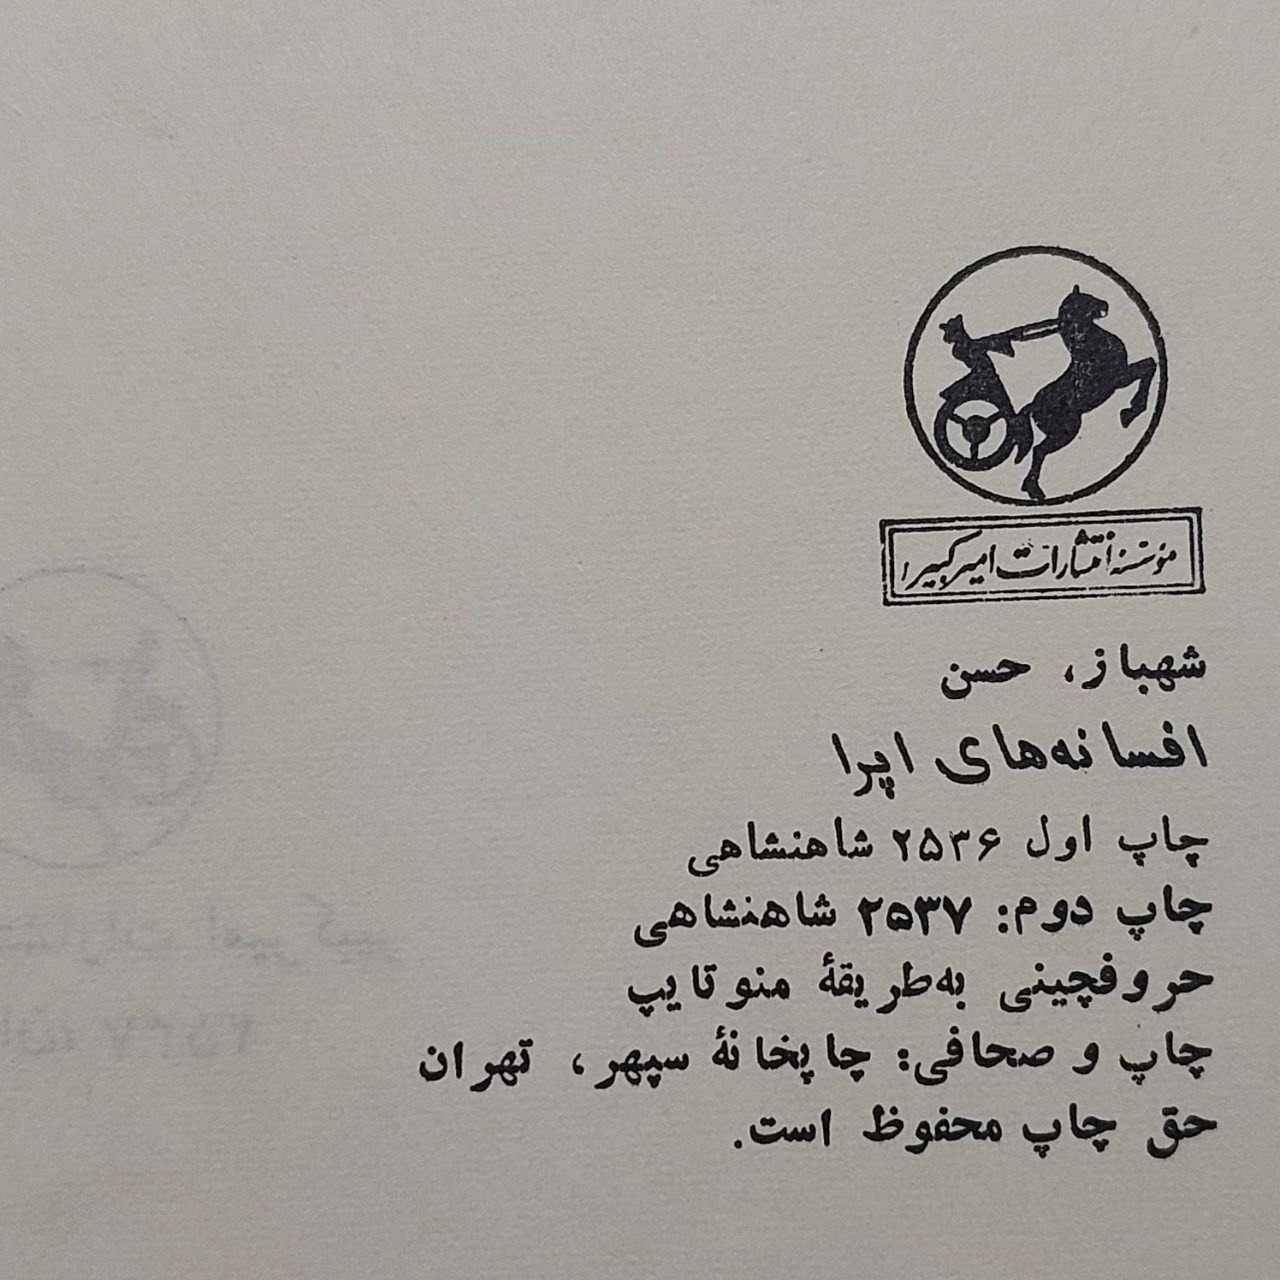 مؤسسه انتشارات امیرکبیر
شهباز، حسن
افسانه‌های اپرا
چاپ اول ۲۵۳۶ شاهنشاهی
چاپ دوم: ۲۵۳۷ شاهنشاهی
حروفچینی به‌طریقهٔ منوتایپ
چاپ و صحافی: چاپخانهٔ سپهر، تهران
حق چاپ محفوظ است.